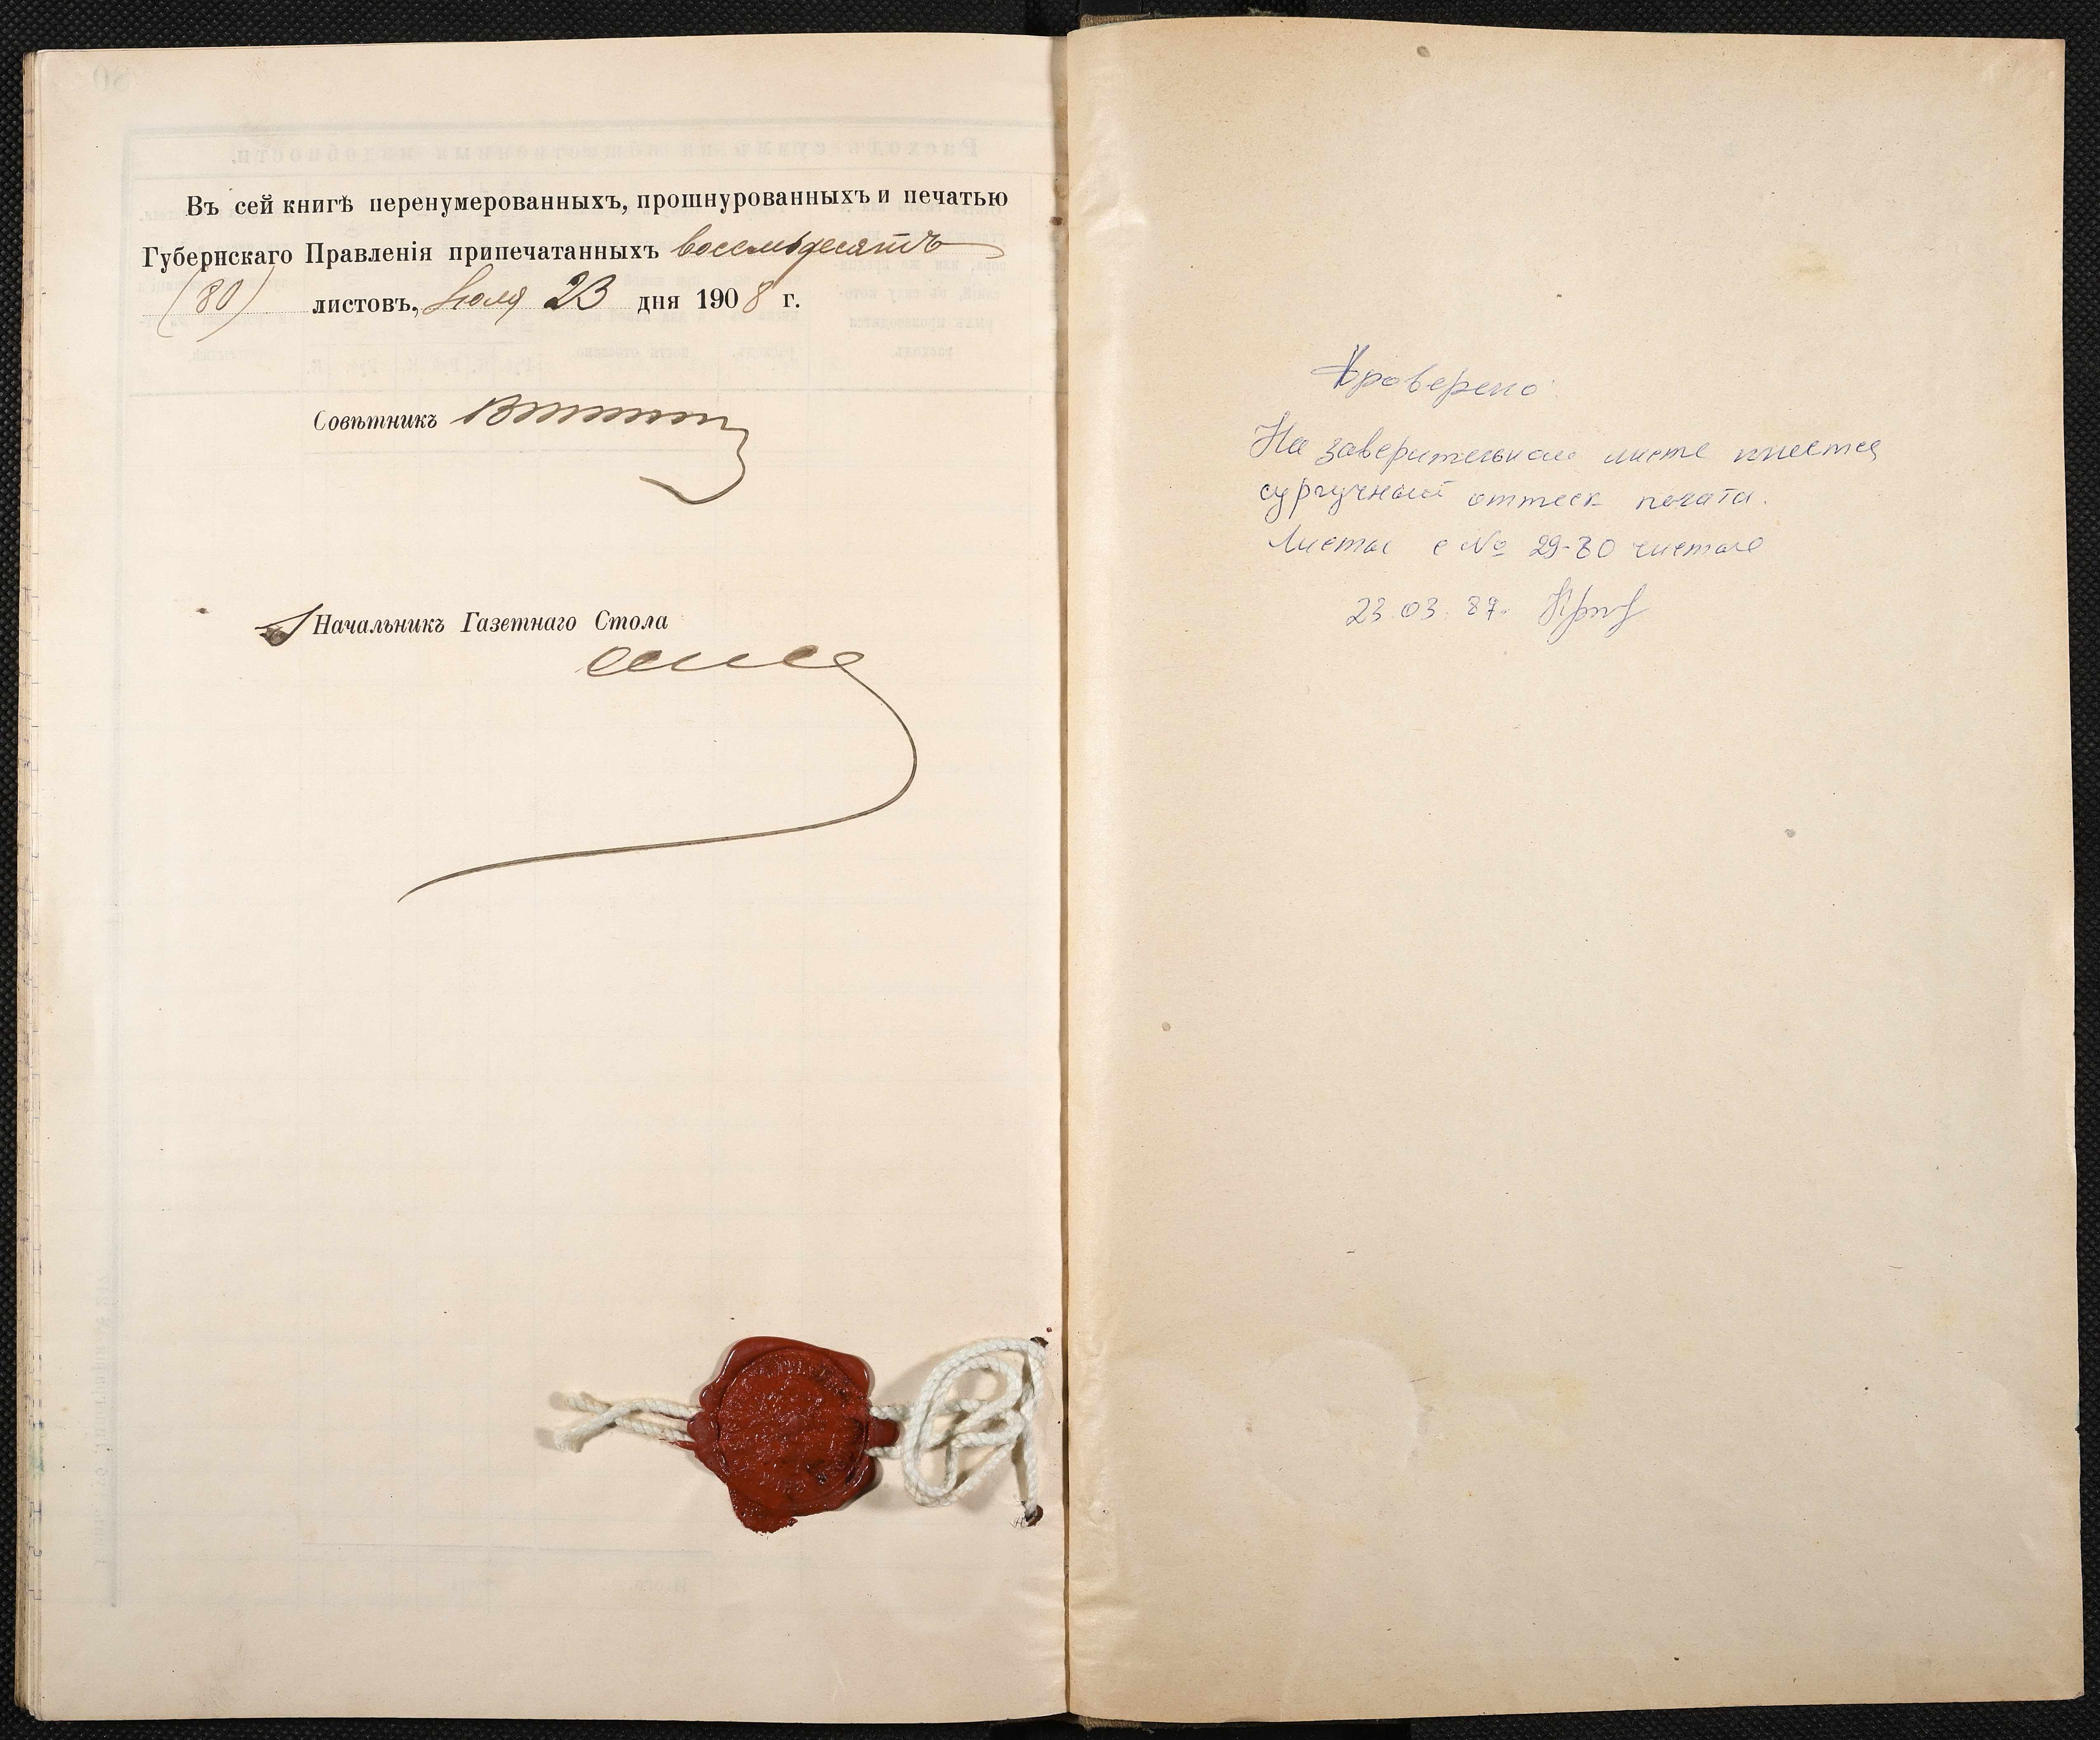 Въ сей книгѣ перенумерованныхъ, прошнурованныхъ и печатью
Губернскаго Правленія припечатанныхъ восемьдесятъ
(80) листовъ, Іюля 23 дня 1908 г.
Совѣтникъ
Начальникъ Газетнаго Стола
Проверено
На заверительном листе имеется
сургучный оттиск печати.
Листы с № 29-80 чистые
23.03.87.